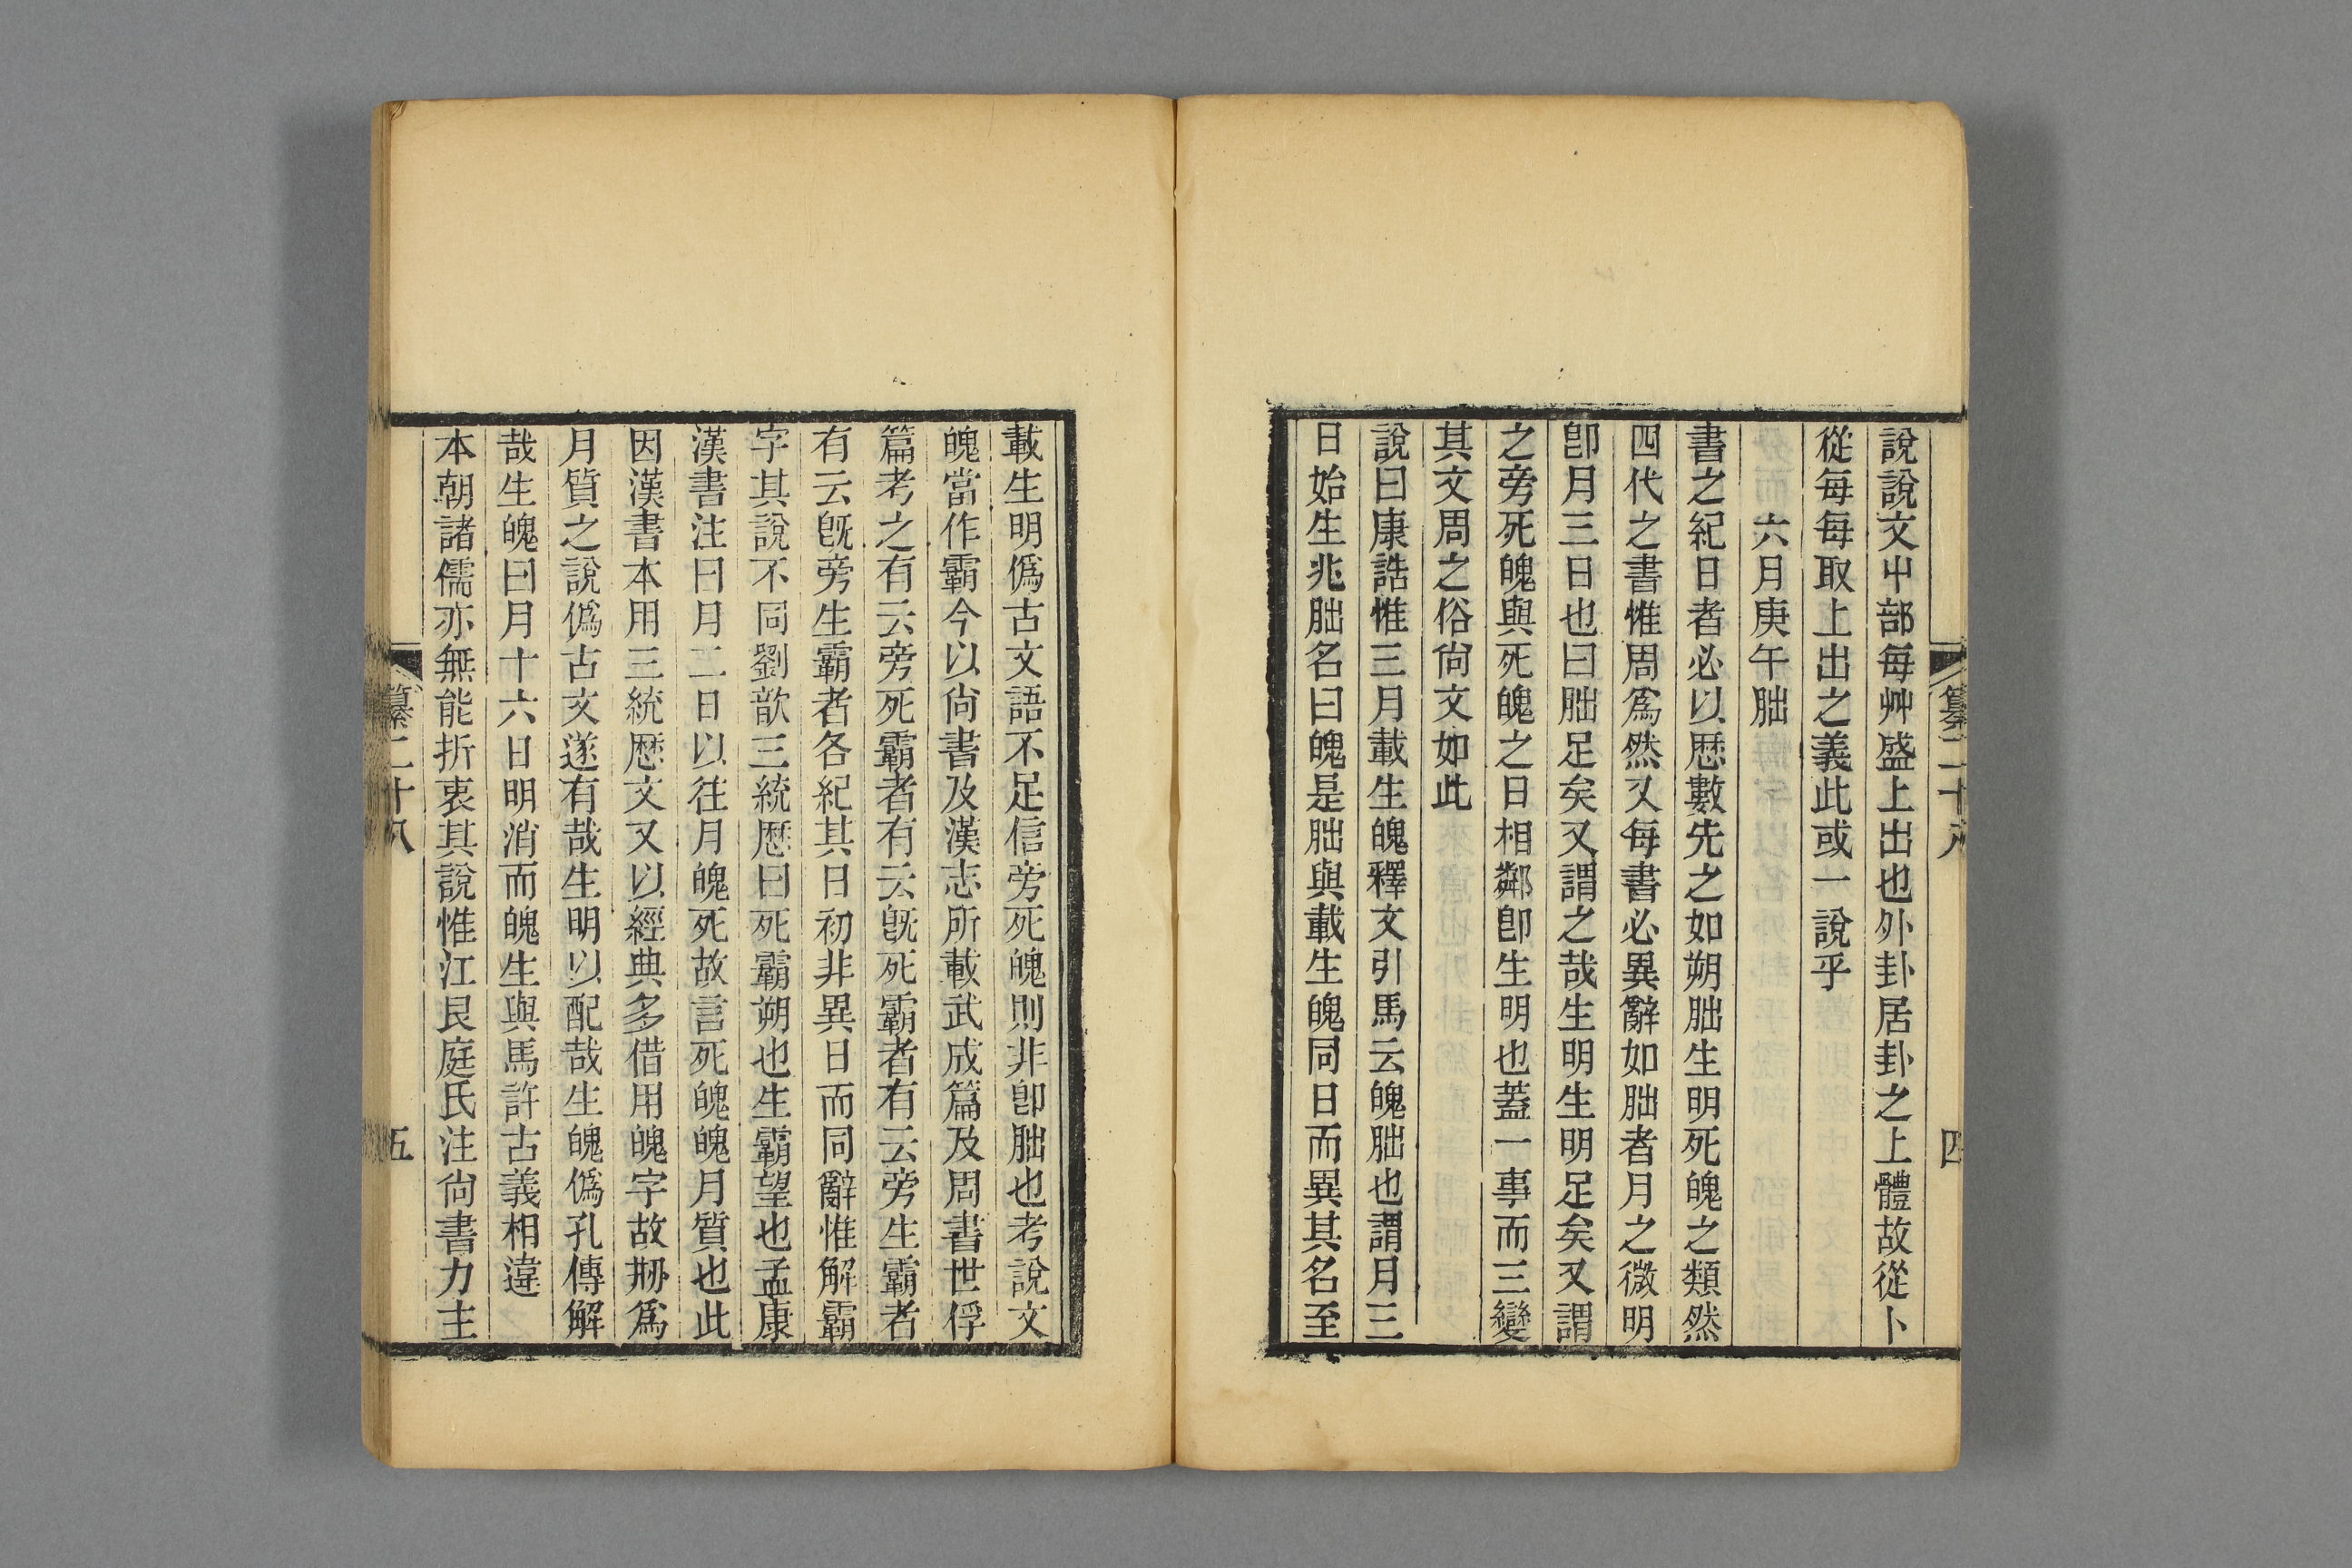 纂二十八 四
說說文屮部每艸盛上出也外卦居卦之上體故從卜
從每每取上出之義此或一說乎
六月庚午朏
書之紀日者必以歴數先之如朔朏生明死魄之類然
四代之書惟周爲然又每書必異辭如朏者月之微明
卽月三日也曰朏足矣又謂之哉生明生明足矣又謂
之旁死魄與死魄之日相鄰卽生明也蓋一事而三變
其文周之俗尙文如此
說曰康誥惟三月載生魄釋文引馬云魄朏也謂月三
日始生兆朏名曰魄是朏與載生魄同日而異其名至
載生明僞古文語不足信旁死魄則非卽朏也考說文
魄當作霸今以尙書及漢志所載武成篇及周書世俘
篇考之有云旁死霸者有云旣死霸者有云旁生霸者
有云旣旁生霸者各紀其日初非異日而同辭惟解霸
字其說不同劉歆三統歴曰死霸朔也生霸望也孟康
漢書注曰月二日以往月魄死故言死魄魄月質也此
因漢書本用三統歴文又以經典多借用魄字故剏爲
月質之說僞古文遂有哉生明以配哉生魄僞孔傳解
哉生魄曰月十六日明消而魄生與馬許古義相違
本朝諸儒亦無能折衷其說惟江艮庭氏注尙書力主
纂二十八 五